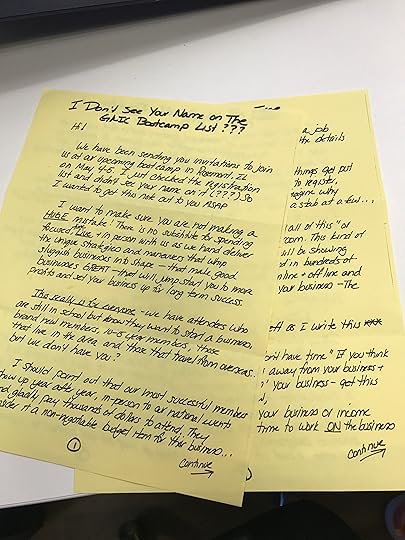 I Don't See Your Name on The
GKIC Bootcamp List???
Hi!
We have been sending you invitations to join
us at our upcoming bootcamp in Rosemont, IL
on May 4-5. I just checked the registration
list and didn't see your name on it (???) So
I wanted to get this note out to you ASAP
I want to make sure you are not making a
HUGE mistake! There is no substitute for spending
focused time in person with us as we hand deliver
the unique strategies and maneuvers that whip
sluggish businesses into shape - that make good
businesses GREAT - that will jump start you to more
profits and set your business up for long term success.
This really is for everyone - we have attendees who
are still in school but know they want to start a business,
brand new members, 10-15 year members, those
that live in the area and those that travel from overseas...
but we don't have you?
I should point out that our most successful members
show up year after year, in-person to our national events
and gladly pay thousands of dollars to attend. They
consider it a non-negotiable budget item for their business...
1
Continue
a job
the details
things get put
to register,
imagine why
a stab at a few...
all of this" or
room. This kind of
will be showing
in hundreds of
online + offline and
your business - The
off as I write this
don't have time" If you think
away from your business +
your business - get this
your business or income
time to work ON the business
Continue